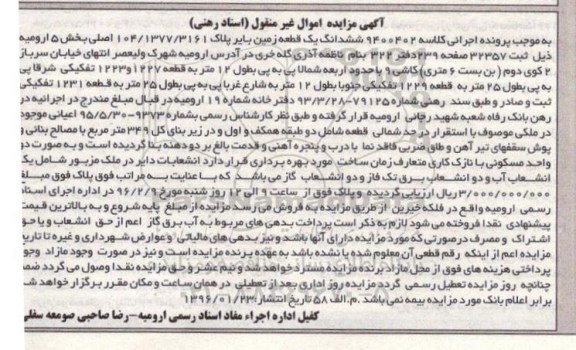 آگهی مزایده اموال غیر منقول (اسناد رهنی)
به موجب پرونده اجرائی کلاسه ۹۴۰۰۴۰۲ ششدانگ یک قطعه زمین بایر پلاک ۱۰۴/۱۳۷۷/۳۱۶۱ اصلی بخش ۵ ارومیه
ذیل ثبت ۳۲۳۵۷ صفحه ۲۳۹ دفتر ۳۲۲ بنام ناظمه آذری گله خری در آدرس ارومیه شهرک ولیعصر انتهای خیابان سرباز
۲ کوی دوم (بن بست ۶ متری) کاشی ۹ با حدود اربعه شمالا پی به پی بطول ۱۲ متر به قطعه ۱۲۲۷ و ۱۲۲۳ تفکیکی شرقا پی
به پی بطول ۲۵ متر به قطعه ۱۲۲۹ تفکیکی جنوبا بطول ۱۲ متر به شارع غربا پی به پی بطول ۲۵ متر به قطعه ۱۲۳۱ تفکیکی
ثبت و صادر و طبق سند رهنی شماره ۷۹۱۲۵-۹۳/۳/۲۸ دفتر خانه شماره ۱۹ ارومیه در قبال مبلغ مندرج در اجرائیه در
رهن بانک رفاه شعبه شهید رجائی ارومیه قرار گرفته و طبق نظر کارشناس رسمی بشماره ۹۲۷۳-۹۵/۵/۳۰ اعیانی موجود
در ملکی موصوف با استقرار در حد شمالی قطعه شامل دو طبقه همکف و اول و در زیر بنای کل ۳۴۹ متر مربع با مصالح بنائی و
پوش سقفهای تیر آهن و طاق ضربی فاقد نما با درب و پنجره آهنی و قدمت بالغ بر دو دهه بنا گردیده است و به صورت دو
واحد مسکونی با نازک کاری متعارف زمان ساخت مورد بهره برداری قرار دارد انشعابات دایر در ملک مزبور شامل یک
انشعاب آب و دو انشعاب برق تک فاز و دو انشعاب گاز می باشد که با عنایت به مراتب فوق پلاک فوق مبلغ
۳/۰۰۰/۰۰۰/۰۰۰ ریال ارزیابی گردیده و پلاک فوق از ساعت ۹ الی ۱۲ روز شنبه مورخ ۹۶/۲/۹ در اداره اجرای اسناد
رسمی ارومیه واقع در فلکه خیرین از طریق مزایده به فروش می رسد مزایده از مبلغ پایه شروع و به بالاترین قیمت
پیشنهادی نقدا فروخته می شود لازم به ذکر است پرداخت بدهی های مربوط به آب برق گاز اعم از حق انشعاب و یا حق
اشتراک و مصرف درصورتی که مورد مزایده دارای آنها باشد و نیز بدهی های مالیاتی و عوارض شهرداری و غیره تا تاریخ
مزایده اعم از اینکه رقم قطعی آن معلوم شده یا نشده باشد به عهده برنده مزایده است و نیز در صورت وجود مازاد وجوه
پرداختی هزینه های فوق از محل مازاد برنده مزایده مسترد خواهد شد و نیم عشر و حق مزایده نقدا وصول می گردد ضمنا
چنانچه روز مزایده تعطیل رسمی گردد مزایده روز اداری بعد از تعطیلی در همان ساعت و مکان مقرر برگزار خواهد شد
برابر اعلام بانک مورد مزایده بیمه نمی باشد .م.الف ۵۸ تاریخ انتشار: ۱۳۹۶/۰۱/۲۳
کفیل اداره اجراء مفاد اسناد رسمی ارومیه-رضا صاحبی صومعه سفلی